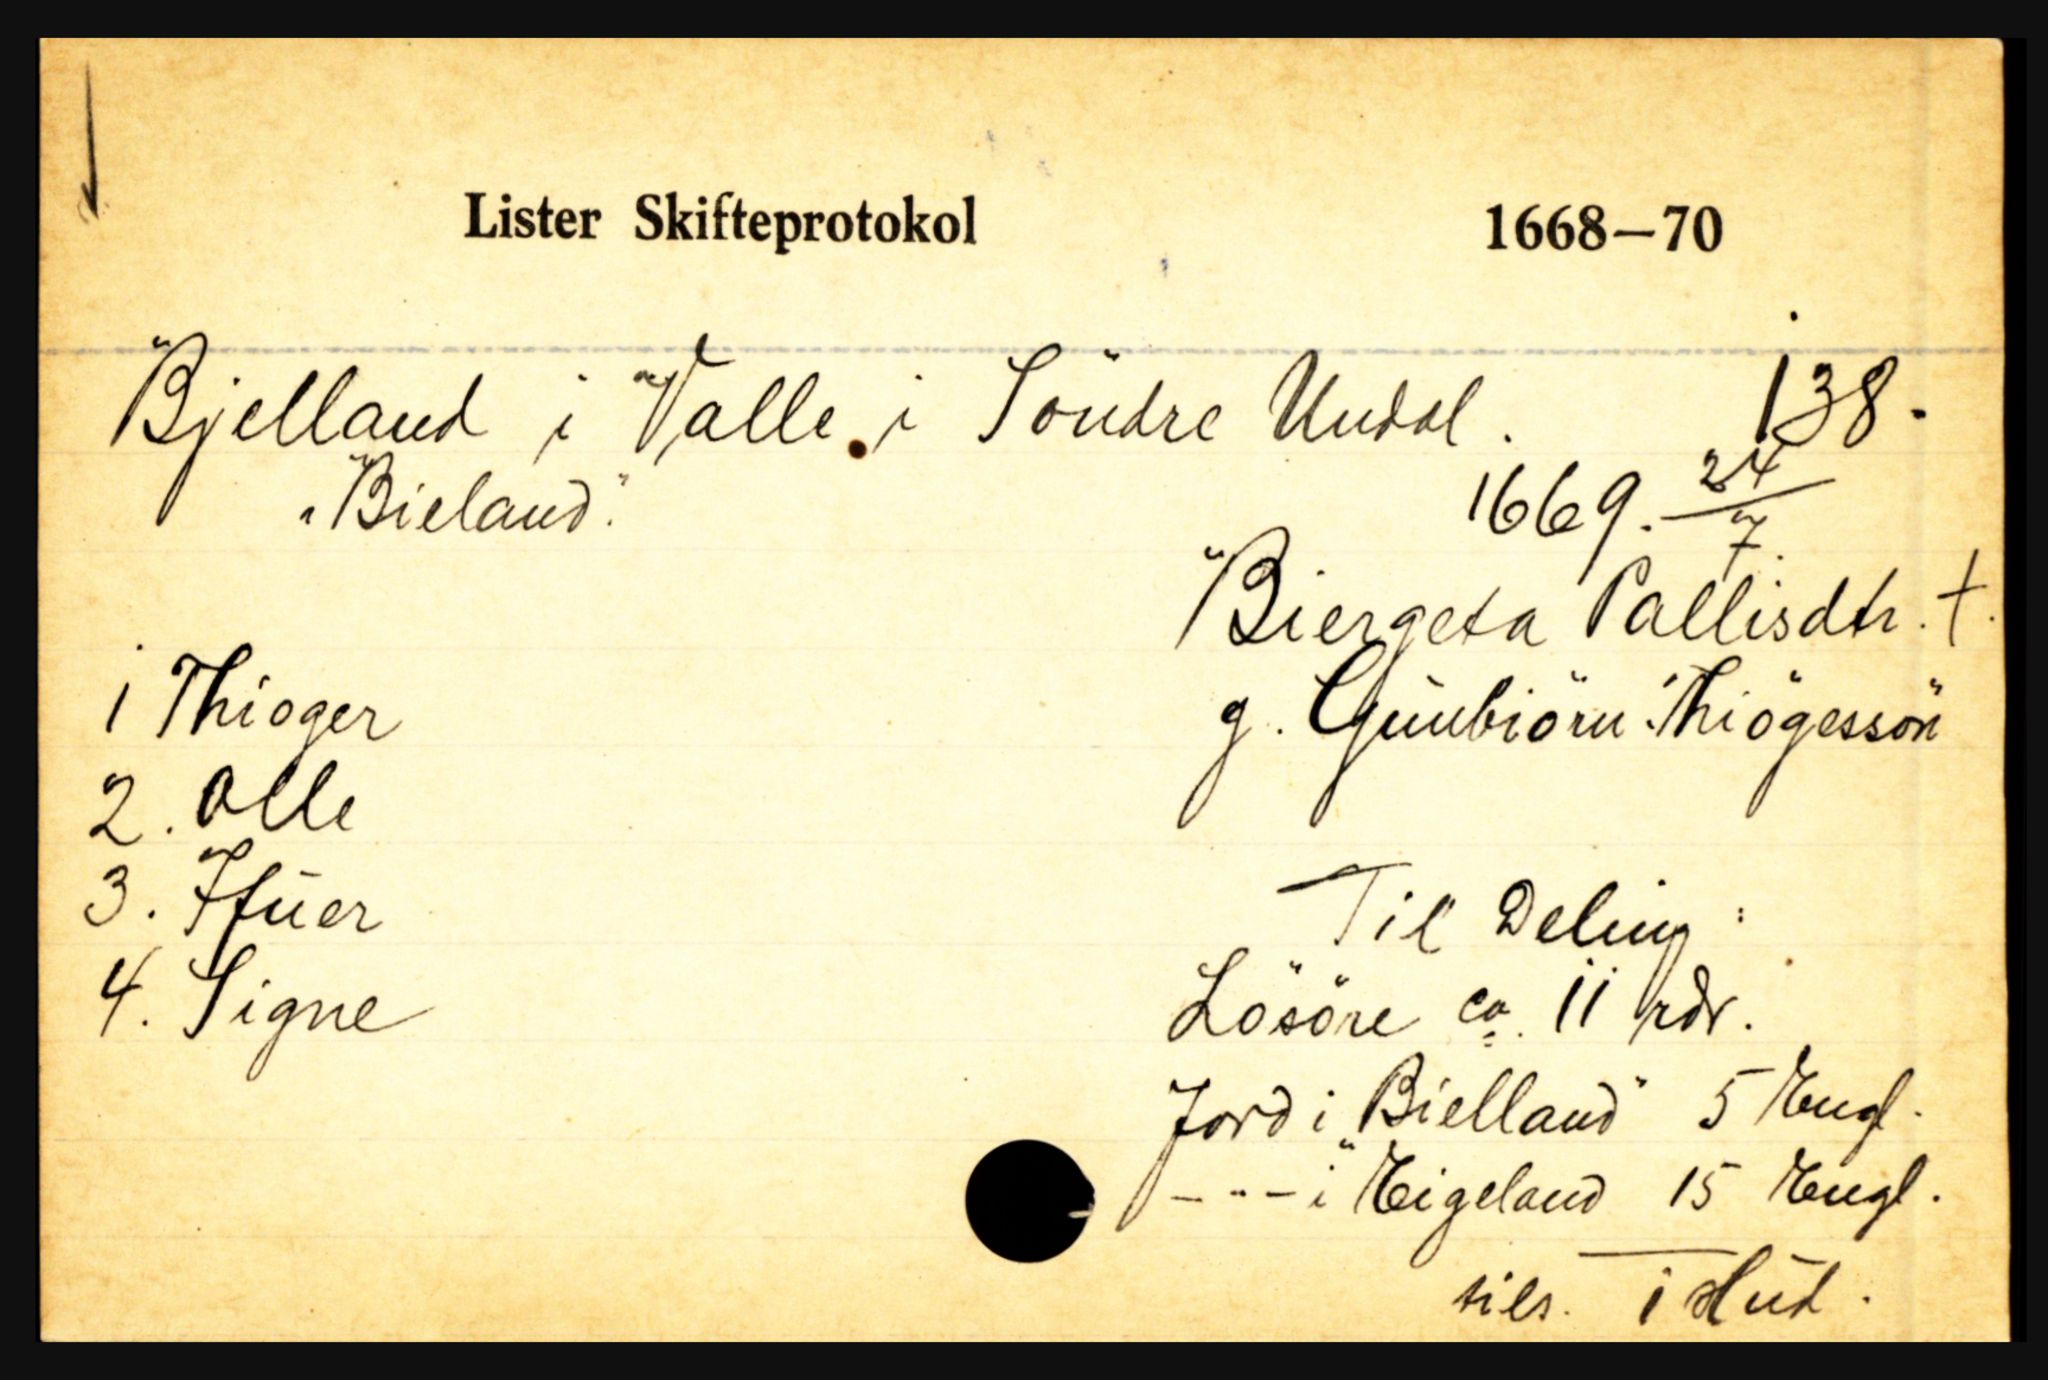 Lister Skifteprotokol 1668—70
Bjelland i Valle i Söndre Undal. 138.
"Bieland". 1669. 24/7.
Biergeta Pallisdtr. †.
1 Thioger g. Gunbiörn Thiögessön
2. Olle
3. Ifuer Til Deling:
4. Signe Lösöre ca. 11 rdr.
Jord i "Bielland" 5 Engl.
-"- i "Eigeland 15 Engl.
tils. 1 Hud.